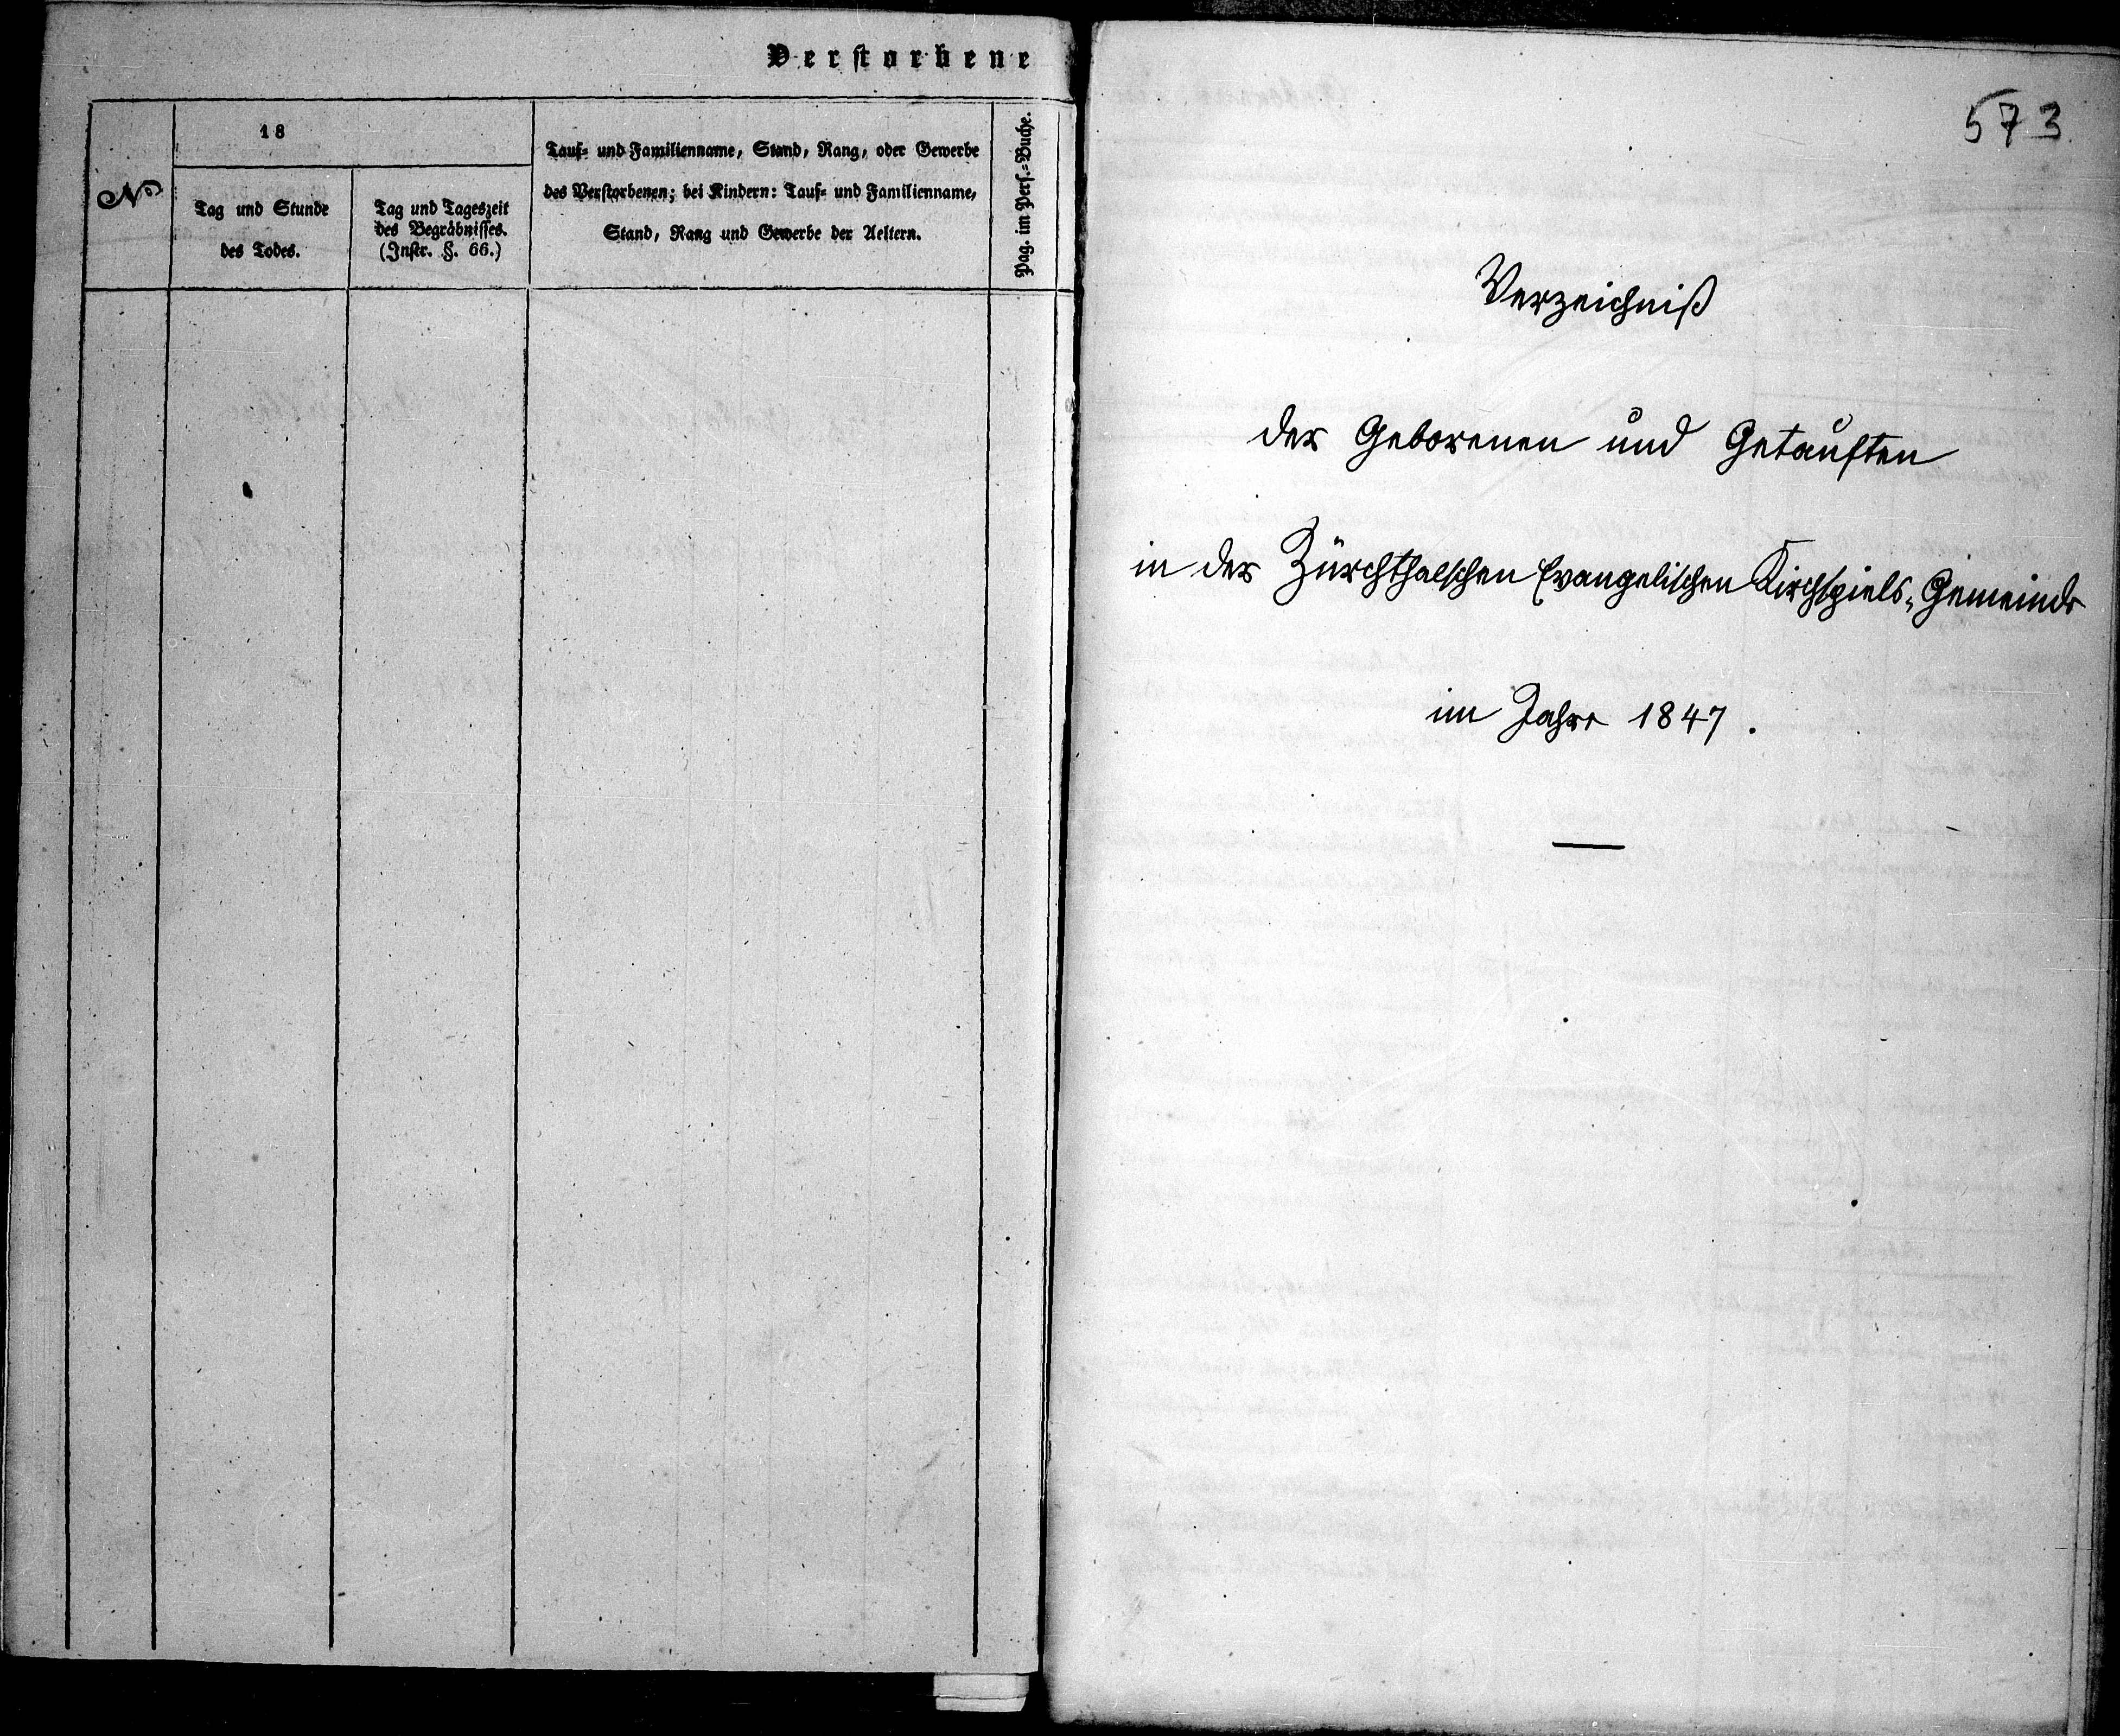 Verstorbene
18
№
Tag und Stunde
des Todes.
Tag und Tageszeit
des Begräbnisses.
(Instr. §. 66.)
Tauf- und Familienname, Stand, Rang, oder Gewerbe
des Verstorbenen; bei Kindern: Tauf- und Familienname,
Stand, Rang und Gewerbe der Aeltern.
Pag. im Pers.-Buche.
573
Verzeichniß
der Geborenen und Getauften
in der Zürchthalschen Evangelischen Kirchspiels-Gemeinde
im Jahre 1847.